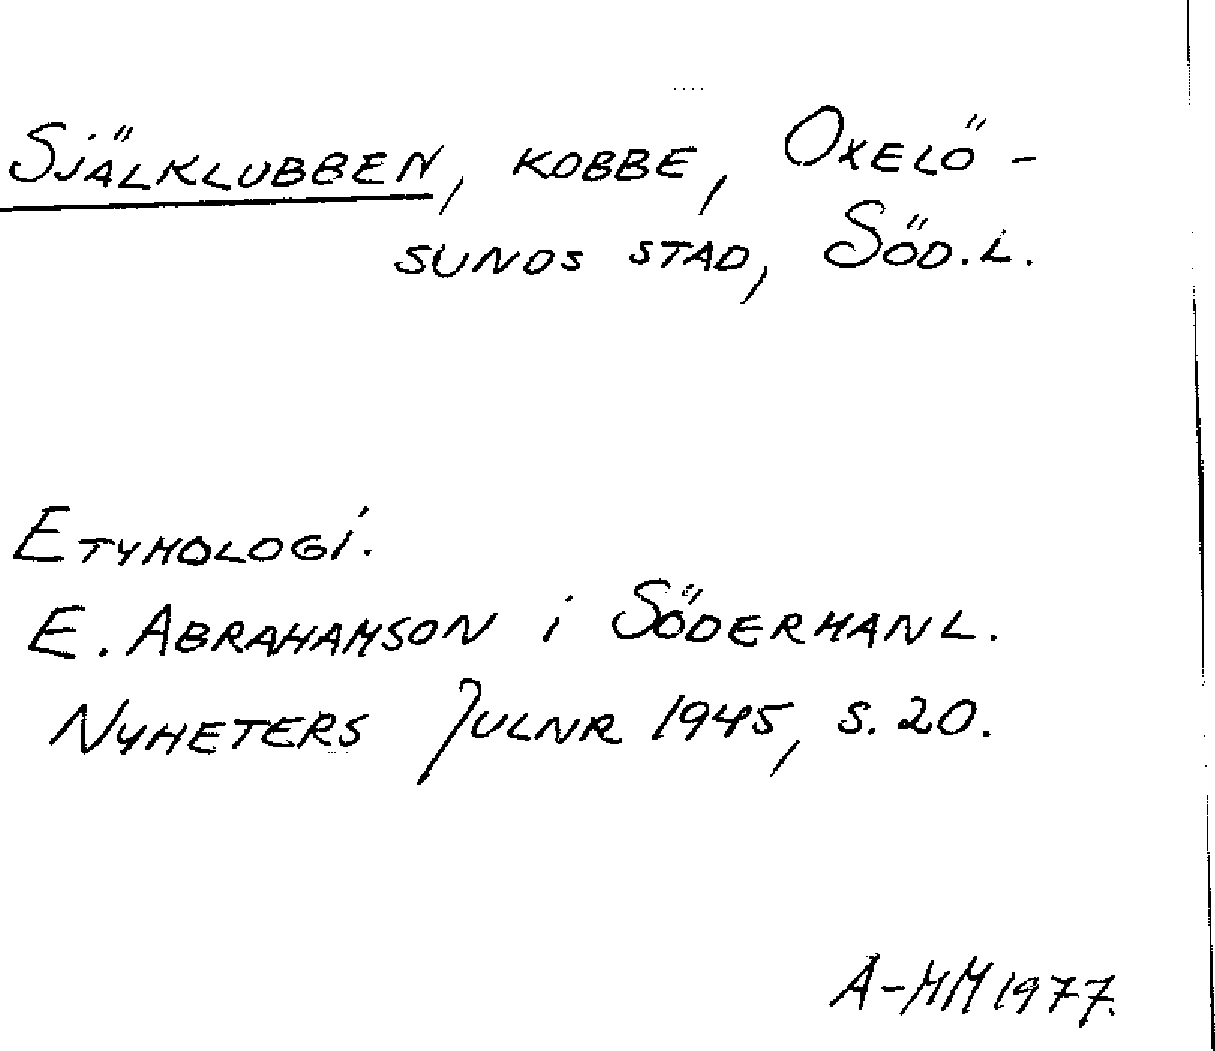 Själklubben, kobbe, Oxelö-
sunds stad, Söd.l.
Etymologi.
E. Abrahamson i Södermanl.
Nyheters Julnr 1945, s. 20.
A-MM 1977.